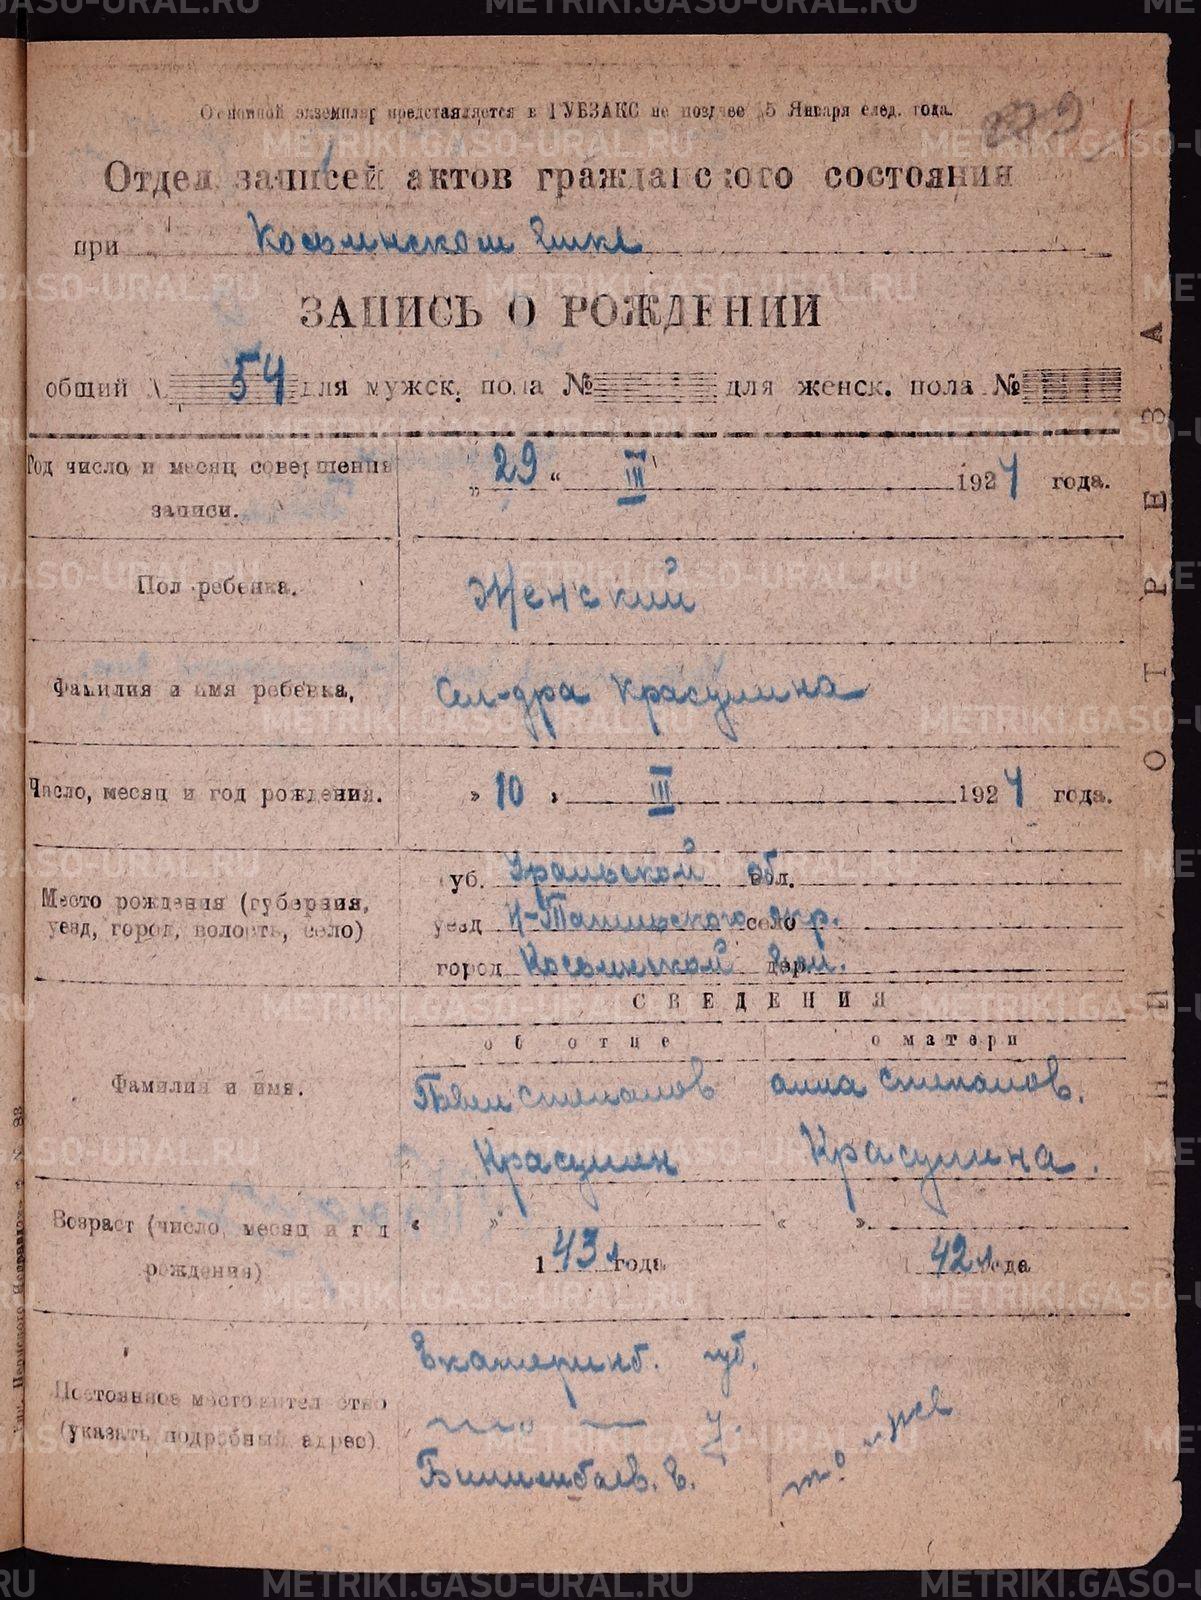 Основной экземпляр представляется в ГУБЗАКС не позднее 15 Января след. года.
Отдел записей актов гражданского состояния
при Косьинском
ЗАПИСЬ О РОЖДЕНИИ
общий № 54 для мужск. пола № для женск. пола №
Год число и месяц совершения записи. „ 29 “ III 1924 года.
Пол ребенка. Женский
Фамилия и имя ребенка, Красулина
Число, месяц и год рождения. » 10 » III 1924 года.
Место рождения (губерния, уезд, город, волость, село)
губ. Уральской обл.
уезд Н-Тагильского село окр.
город дер.
СВЕДЕНИЯ
об отце о матери
Фамилия и имя. Степанов Анна Степанов.
Красулин Красулина.
Возраст (число, месяц и год рождения) « » « »
1 43 л года 1 42 л года
Постоянное местожительство (указать подробный адрес)
Екатеринб. губ.
то же
— у.
Билимбаев. в.
О Т Р Е З А
Л И Н И Я
METRIKI.GASO-URAL.RU